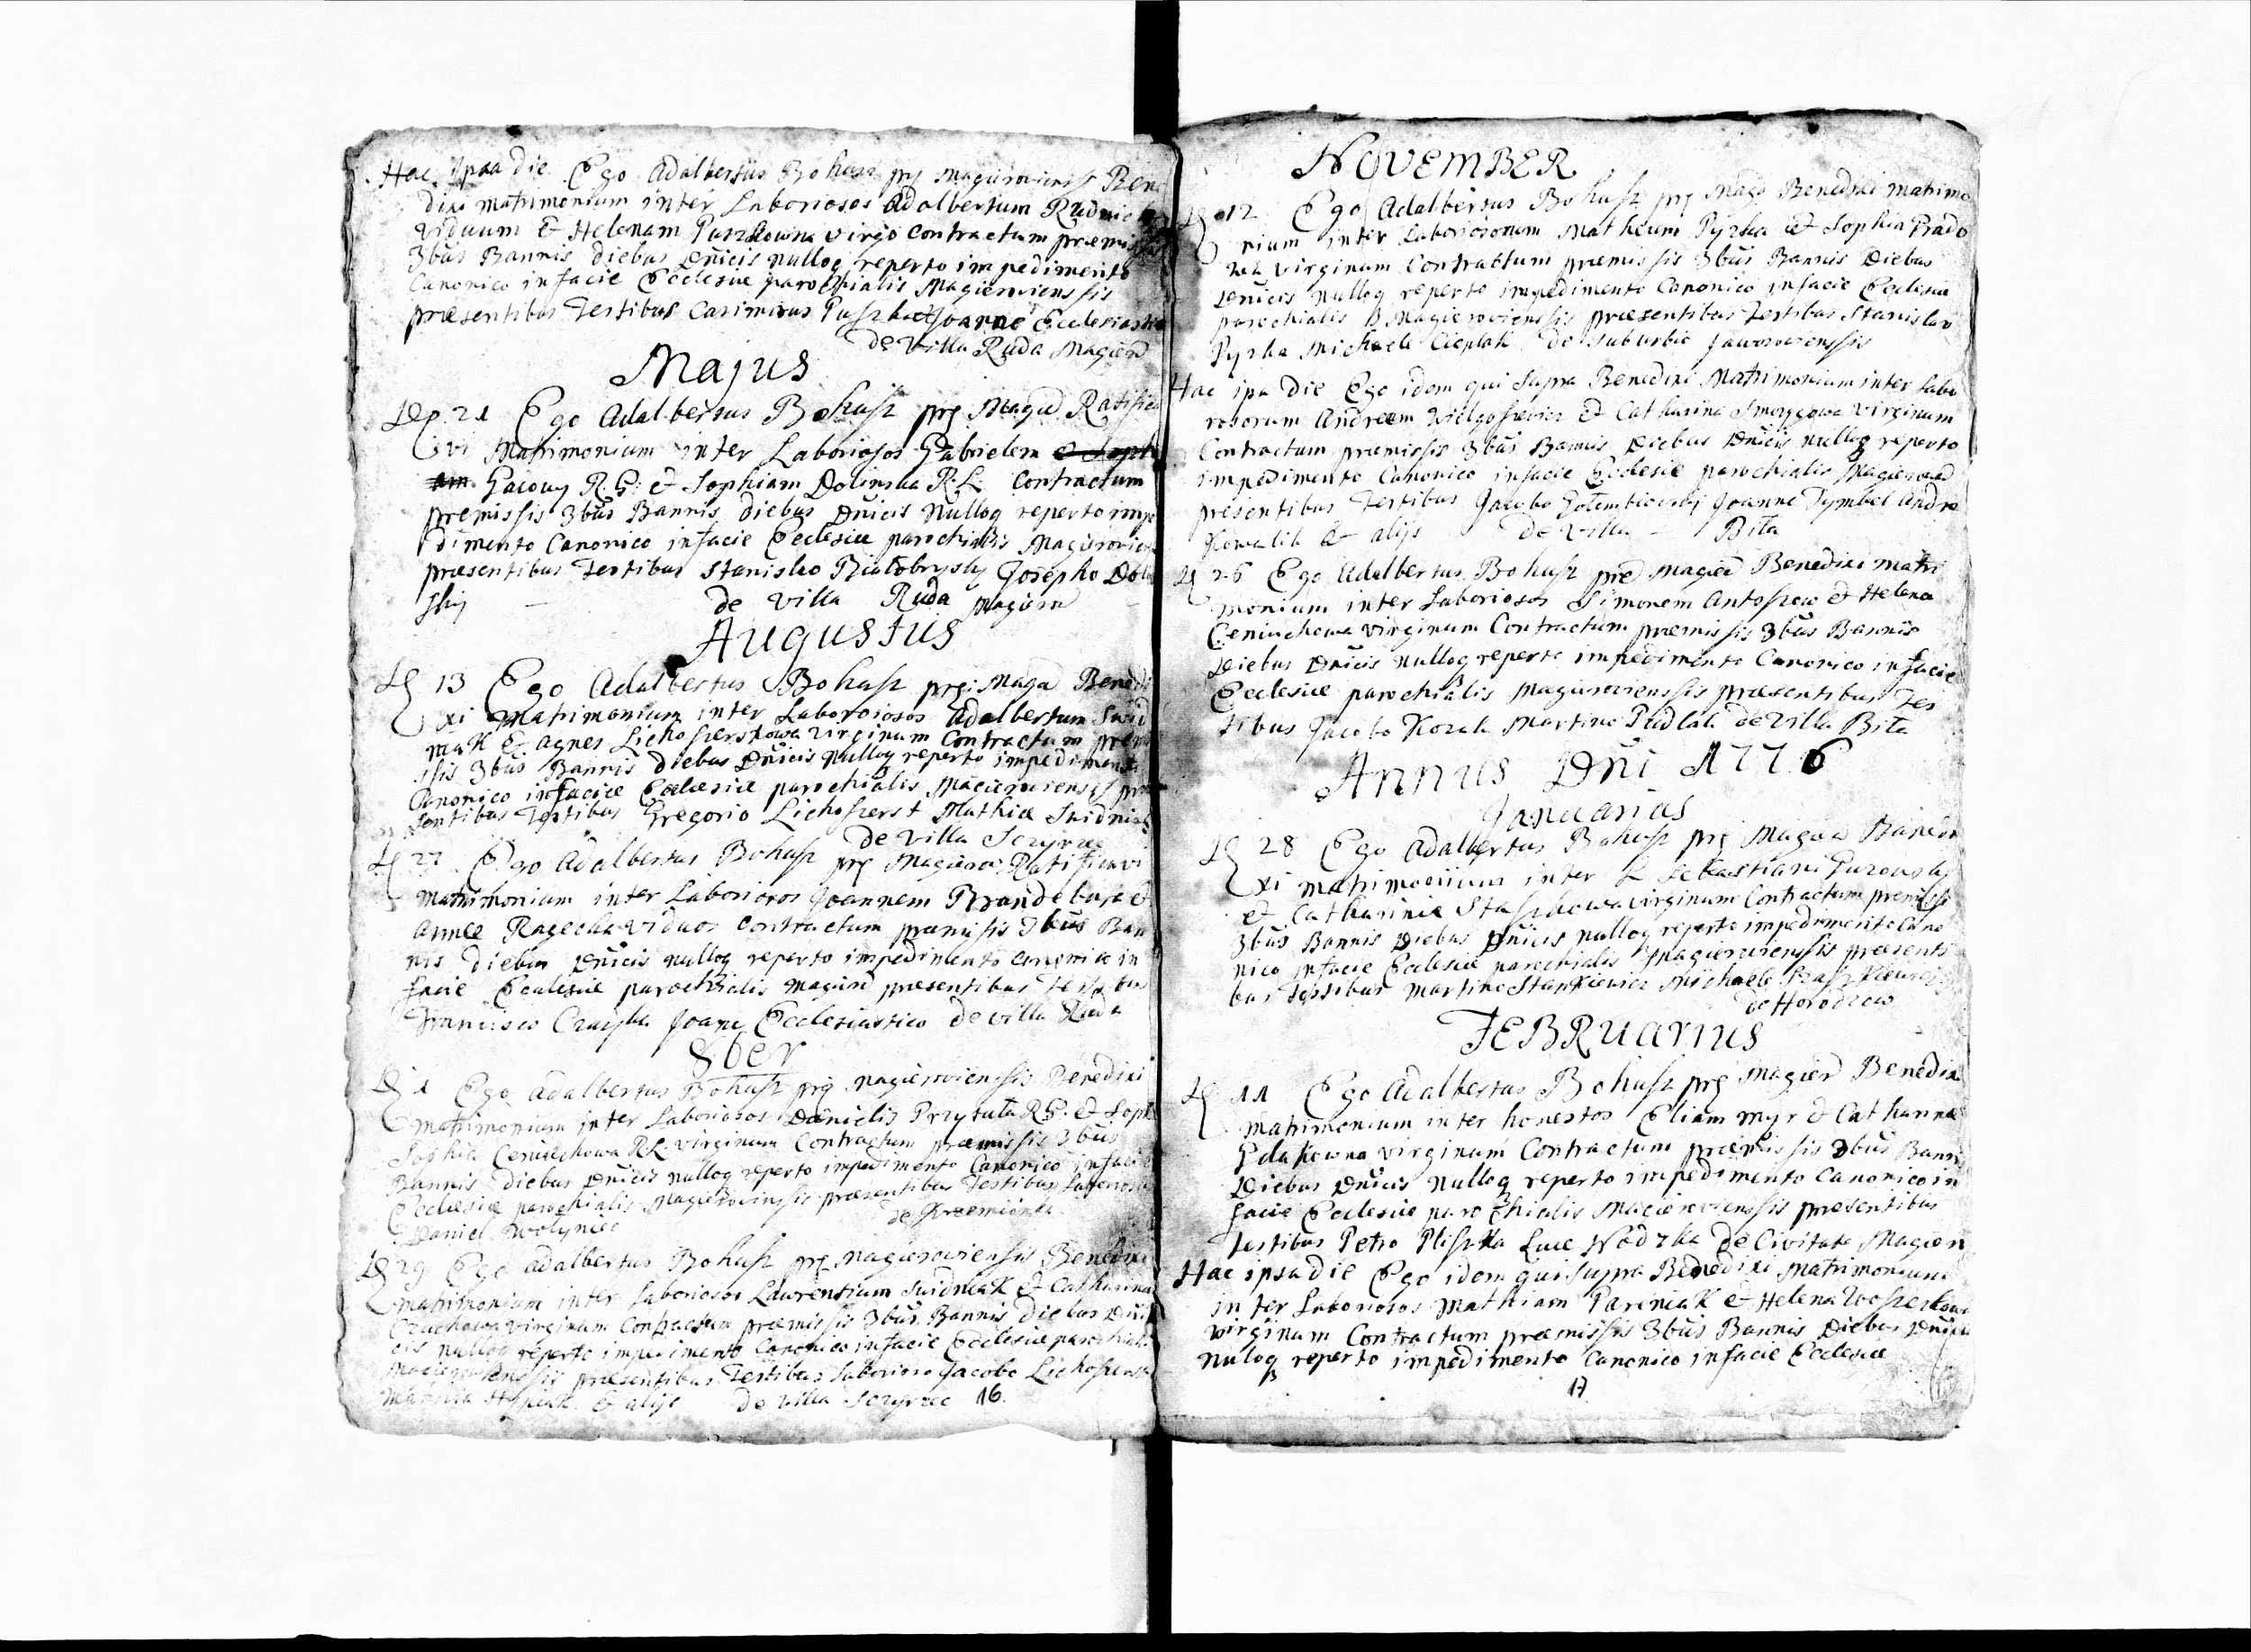 Hac Ipsa die Ego Adalbertus Bohusz prp Magieroviensis Bene
dixi matrimonium inter Laboriosos Adalbertum Rudnic
viduum & Helenam Puszkowna virgo contractum præmissis
3bus Bannis diebus Dnicis nulloq reperto impedimento
Canonico infacie Ecclesiæ parochialis Magieroviensis
præsentibus Testibus Casimirus Puszka Joanne Ecclesiastico
de Villa Ruda Magierov
Majus
D 21 Ego Adalbertus Bohusz prp Magie Ratifica
vi Matrimonium inter Laboriosos Gabrielem
Gacowy R. G: & Sophiam Dolinska R: L: Contractum
premissis 3bus Bannis diebus Dnicis Nulloq reperto impe
dimento Canonico infacie Ecclesiæ parochialis Magierovien
præsentibus Testibus Stanislao Białobrysky Josepho Dolin
skij de Villa Ruda Magierov
Augustus
D 13 Ego Adalbertus Bohusz prp: Magie Benedi
xi Matrimonium inter Laboroiosos Adalbertum Swid
niaK & Agnes Lichoszerstowa virginum Contractum premi
ssis 3bus Bannis diebus Dnicis Nulloq reperto impedimento
Canonico infaciæ Ecclesiæ parochialis Magieroviensis præ
sentibus Testibus Gregorio Lichoszerst Mathia Swidniak
de Villa Sczyrzec
D 27 Ego Adalbertus Bohusz prp Magierov Ratificavi
Matrimonium inter Laboriosos Joannem Brandebura &
Annæ Ragecka viduos Contractum præmissis 3bus Ban
nis diebus Dnicis nulloq reperto impedimento canonico in
facie Ecclesiæ parochialis Magierov presentibus Testibus
Francisco Joane Ecclesiastico de villa Ruda
8ber
D 1 Ego Adalbertus Bohusz prp Magieroviensis Benedixi
matrimonium inter Laboriosos Danielis Przytuła R G: & Soph
Sophia R L virginum Contractum præmissis 3bus
Bannis diebus Dnicis nulloq reperto impedimento Canonico infacie
Ecclesiæ parochialis Magieroviensis præsentibus Testibus Laboriosis
Daniel Wolyniec de
D 29 Ego Adalbertus Bohusz prp Magieroviensis Benedixi
matrimonium inter Laboriosos Laurentium SwidniaK & Catharina
virginum Contractum præmissis 3bus Bannis diebus Dni
cis nulloq reperto impedimento Canonico infacie Ecclesiæ parochialis
Magieroviensis præsentibus Testibus Laborioso Jacobo Lichoszerst
& alijs de villa Sczyrzec 16.
NOVEMBER
D 12 Ego Adalbertus Bohusz prp Mago Benedixi matrimo
nium inter Laboriosorum Matheum Pyrka & Sophia Prado
virginum Contractum præmissis 3bus Bannis Diebus
Dnicis Nulloq reperto impedimento Canonico infacie Ecclesiæ
parochialis Magieroviensis præsentibus Testibus Stanislao
Pyrka Michaele Cieplak de suburbio Jaworoviensis
Hac ipa die Ego idem qui Supra Benedixi Matrimonium inter Labo
rosorum Andream & Catharina virginum
Contractum præmissis 3bus Bannis Diebus Dnicis nulloq reperto
impedimento Canonico infacie Ecclesiæ parochialis Magierovi
presentibus Testibus Jacobo Joanne Tymbel Andre
Kowalik & alijs de Villa Biła
D 26 Ego Adalbertus Bohusz pre Magie Benedixi matri
monium inter Laboriosos Simonem Antoszow & Helena
virginum Contractum præmissis 3bus Bannis
Diebus Dnicis Nulloq reperto impedimento Canonico infacie
Ecclesiæ parochialis Magieroviensis præsentibus Tes
tibus Jacobo Kozak Martino Pudlak de Villa Biła
Annus Dni 1776
Januarias
D 28 Ego Adalbertus Bohusz prp Magie Benedi
xi matrimonium inter L Sebastiani Gurowsky
& Catharinæ Staszkowa virginum Contractum premissi
3bus Bannis Diebus Dnicis nulloq reperto impedimento Cano
nico infacie Ecclesiæ parochialis Magieroviensis præsenti
bus Testibus Martino Stankiewicz Michaele
de Horodzow
FEBRUARIUS
D 11 Ego Adalbertus Bohusz prp Magier Benedixi
Matrimonium inter honestos Eliam Myr & Catharinæ
virginum Contractum præmissis 3bus Bannis
Diebus Dnicis Nulloq reperto impedimento Canonico in
facie Ecclesiæ parochialis Magieroviensis præsentibus
Testibus Petro Pliszka Luce Wodzka de Civitate Magier
Hac ipsa die Ego idem qui Supra Benedixi Matrimonium
inter Laboriosos Mathiam PareniaK & Helena
virginum Contractum præmissis 3bus Bannis Diebus Dnicis
nuloq reperto impedimento Canonico infacie Ecclesiæ
17